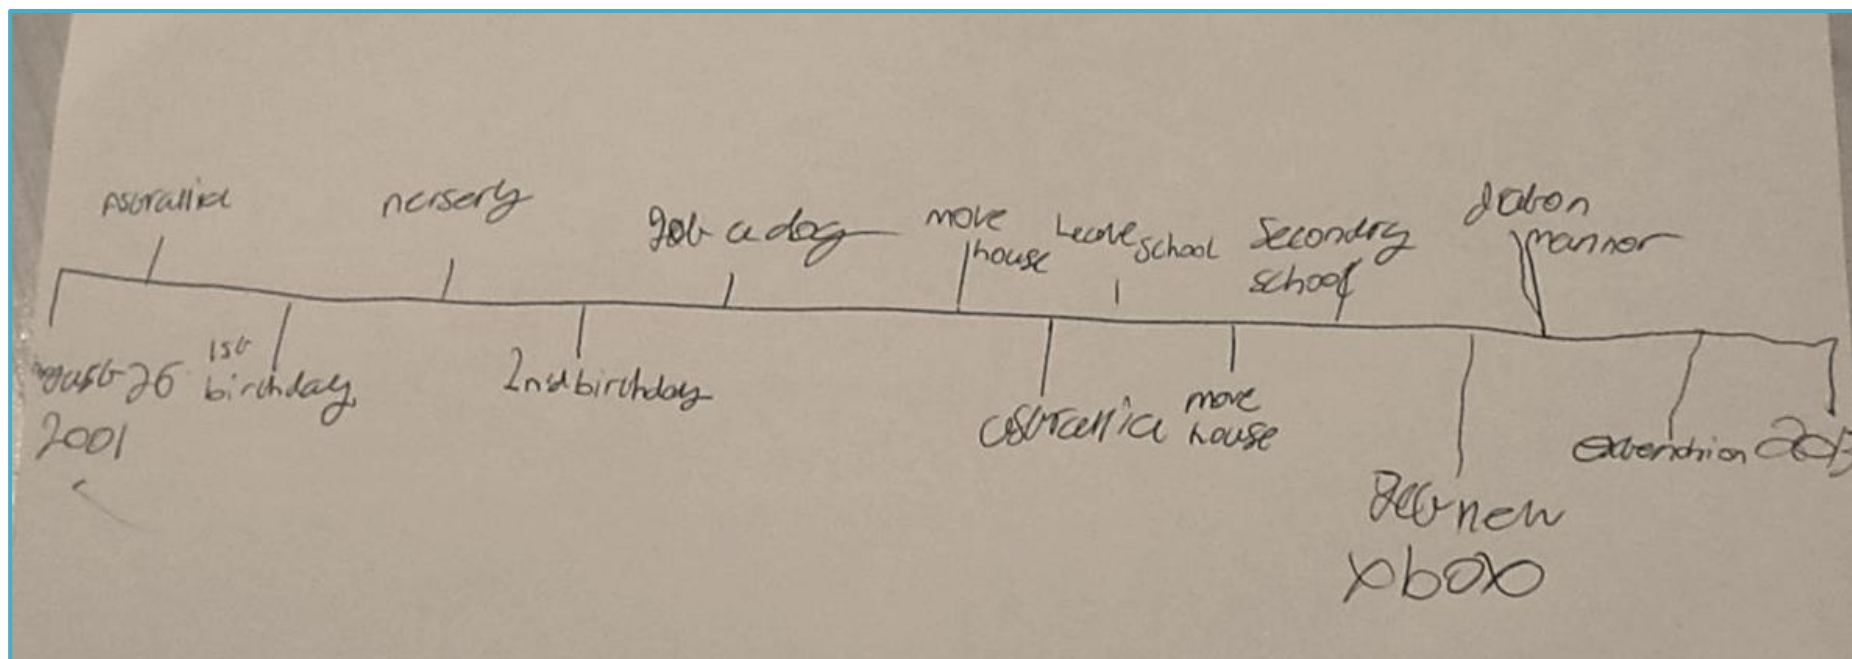 Astrallia
nersery
got a dog
move
house
Leave school
Secondry
school
manner
august 26
2001
1st
birthday
2nd birthday
astrallia
move
house
get new
xbox
2013